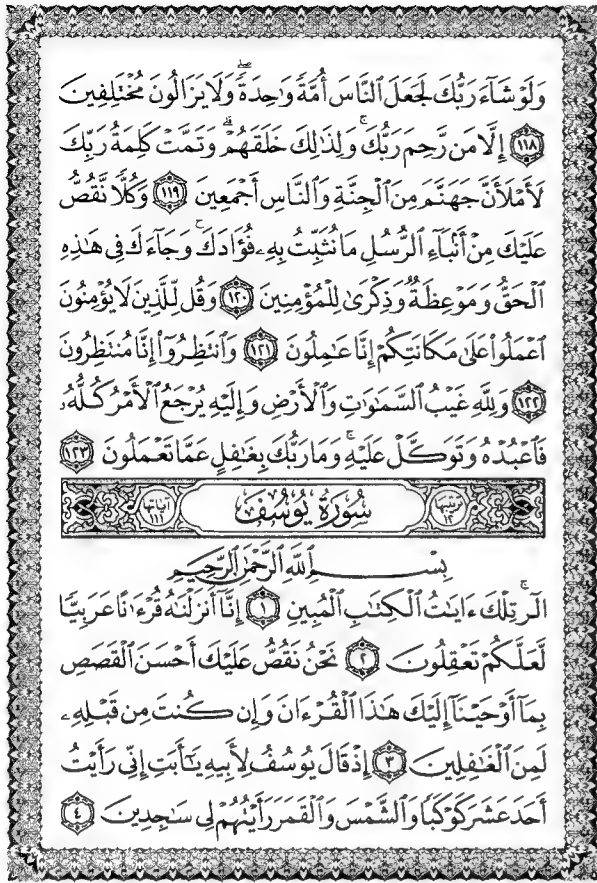 وَلَوْ شَآءَ رَبُّكَ لَجَعَلَ ٱلنَّاسَ أُمَّةً وَٰحِدَةً ۖ وَلَا يَزَالُونَ مُخْتَلِفِينَ
١١٨ إِلَّا مَن رَّحِمَ رَبُّكَ ۚ وَلِذَٰلِكَ خَلَقَهُمْ ۗ وَتَمَّتْ كَلِمَةُ رَبِّكَ
لَأَمْلَأَنَّ جَهَنَّمَ مِنَ ٱلْجِنَّةِ وَٱلنَّاسِ أَجْمَعِينَ ١١٩ وَكُلًّا نَّقُصُّ
عَلَيْكَ مِنْ أَنۢبَآءِ ٱلرُّسُلِ مَا نُثَبِّتُ بِهِۦ فُؤَادَكَ ۚ وَجَآءَكَ فِى هَٰذِهِ
ٱلْحَقُّ وَمَوْعِظَةٌ وَذِكْرَىٰ لِلْمُؤْمِنِينَ ١٢٠ وَقُل لِّلَّذِينَ لَا يُؤْمِنُونَ
ٱعْمَلُوا۟ عَلَىٰ مَكَانَتِكُمْ إِنَّا عَٰمِلُونَ ١٢١ وَٱنتَظِرُوٓا۟ إِنَّا مُنتَظِرُونَ
١٢٢ وَلِلَّهِ غَيْبُ ٱلسَّمَٰوَٰتِ وَٱلْأَرْضِ وَإِلَيْهِ يُرْجَعُ ٱلْأَمْرُ كُلُّهُۥ
فَٱعْبُدْهُ وَتَوَكَّلْ عَلَيْهِ ۚ وَمَا رَبُّكَ بِغَٰفِلٍ عَمَّا تَعْمَلُونَ ١٢٣
ترتيبها ١٢ سُورَةُ يُوسُفَ آياتها ١١١
بِسْمِ ٱللَّهِ ٱلرَّحْمَٰنِ ٱلرَّحِيمِ
الٓر ۚ تِلْكَ ءَايَٰتُ ٱلْكِتَٰبِ ٱلْمُبِينِ ١ إِنَّآ أَنزَلْنَٰهُ قُرْءَٰنًا عَرَبِيًّا
لَّعَلَّكُمْ تَعْقِلُونَ ٢ نَحْنُ نَقُصُّ عَلَيْكَ أَحْسَنَ ٱلْقَصَصِ
بِمَآ أَوْحَيْنَآ إِلَيْكَ هَٰذَا ٱلْقُرْءَانَ وَإِن كُنتَ مِن قَبْلِهِۦ
لَمِنَ ٱلْغَٰفِلِينَ ٣ إِذْ قَالَ يُوسُفُ لِأَبِيهِ يَٰٓأَبَتِ إِنِّى رَأَيْتُ
أَحَدَ عَشَرَ كَوْكَبًا وَٱلشَّمْسَ وَٱلْقَمَرَ رَأَيْتُهُمْ لِى سَٰجِدِينَ ٤